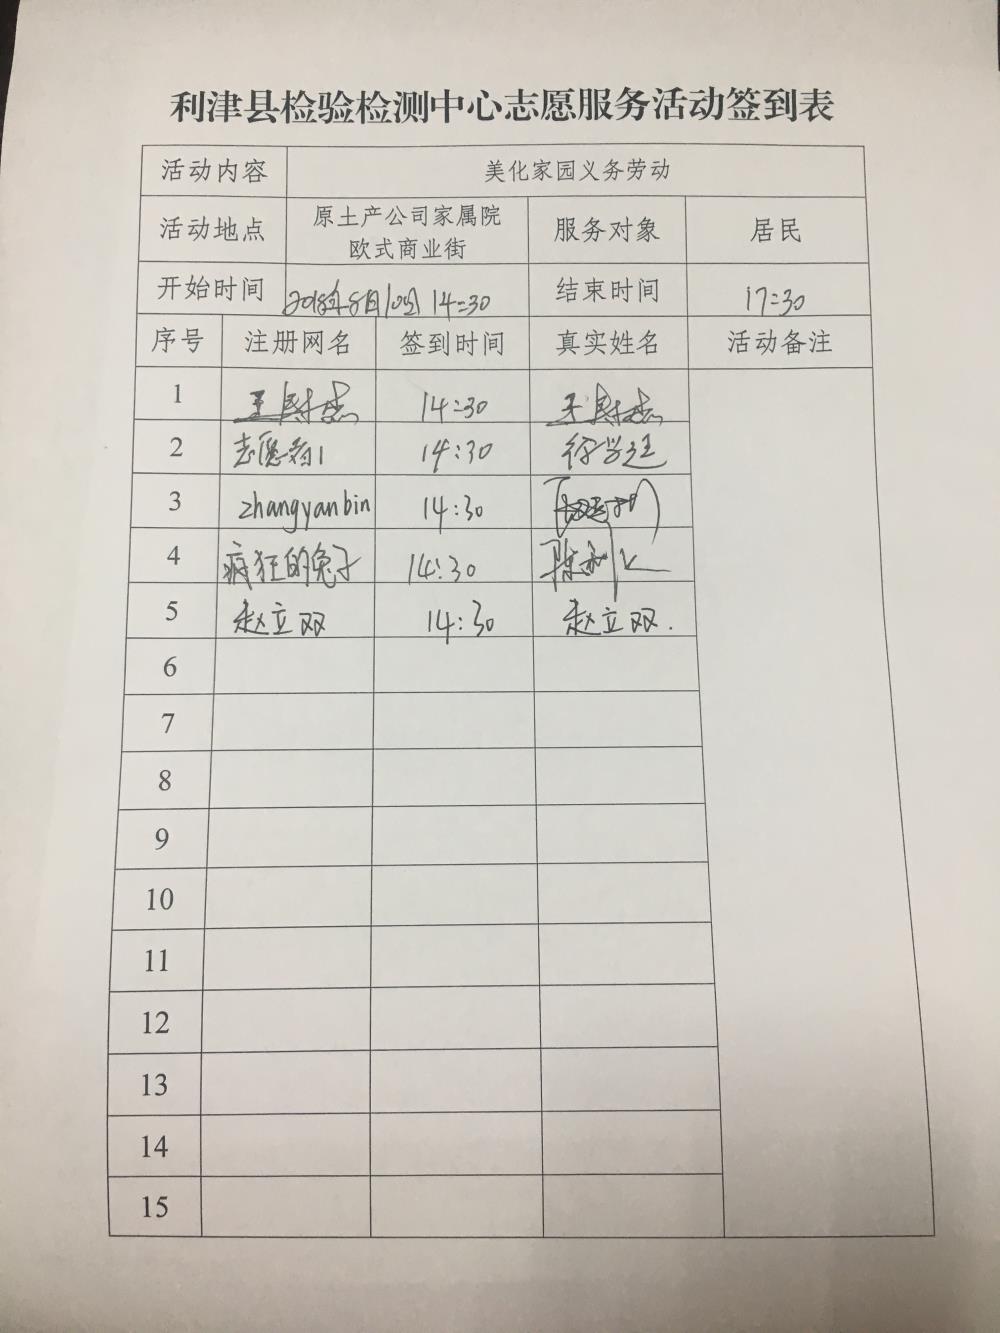 利津县检验检测中心志愿服务活动签到表
活动内容 美化家园义务劳动
活动地点 原土产公司家属院 欧式商业街 服务对象 居民
开始时间 2018年8月10日 14:30 结束时间 17:30
序号 注册网名 签到时间 真实姓名 活动备注
1 14:30
2 志愿者1 14:30
3 zhangyanbin 14:30
4 疯狂的兔子 14:30
5 赵立双 14:30 赵立双.
6
7
8
9
10
11
12
13
14
15